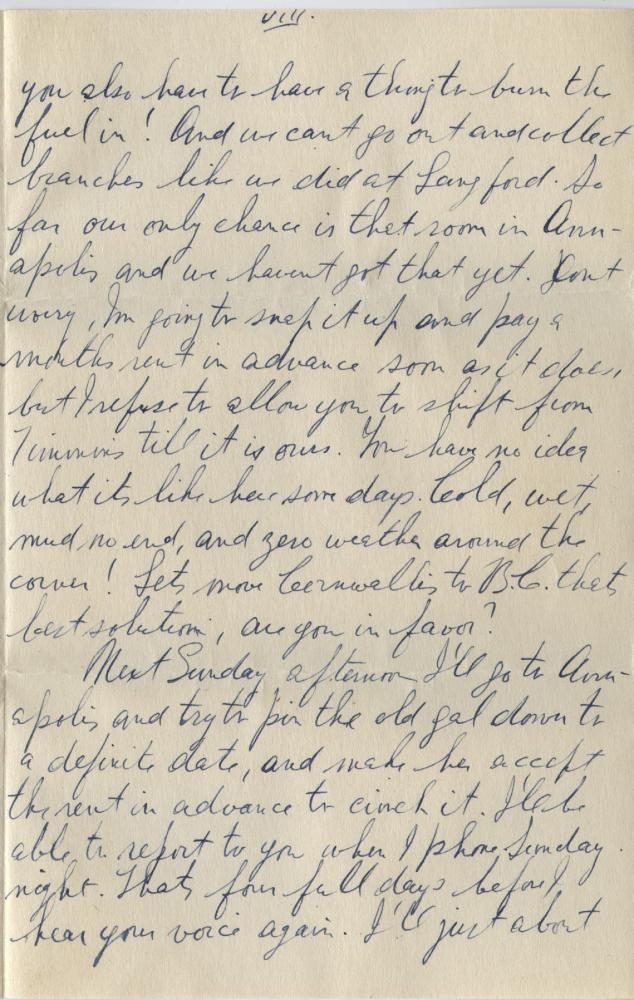 VIII.
you also have to have a thing to burn the
fuel in! And we cant go out and collect
branches like we did at Langford. So
far our only chance is that room in Ann-
apolis and we havent got that yet. Dont
worry, Im going to snap it up and pay a
months rent in advance soon as it does,
but I refuse to allow you to shift from
Timmins till it is ours. You have no idea
what its like here some days. Cold, wet,
mud no end, and zero weather around the
corner! Lets move Cornwallis to B.C. thats
best solution, are you in favor?
Next Sunday afternoon I'll go to Ann-
apolis and try to pin the old gal down to
a definite date, and make her accept
the rent in advance to cinch it. I'll be
able to report to you when I phone Sunday
night. Thats four full days before I
hear your voice again. I'll just about